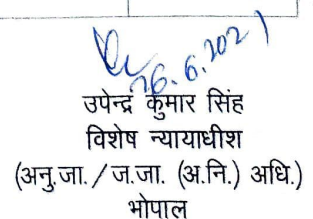 26.6.2021
उपेन्द्र कुमार सिंह
विशेष न्यायाधीश
(अनु.जा. / ज.जा. (अ.नि.) अधि.)
भोपाल